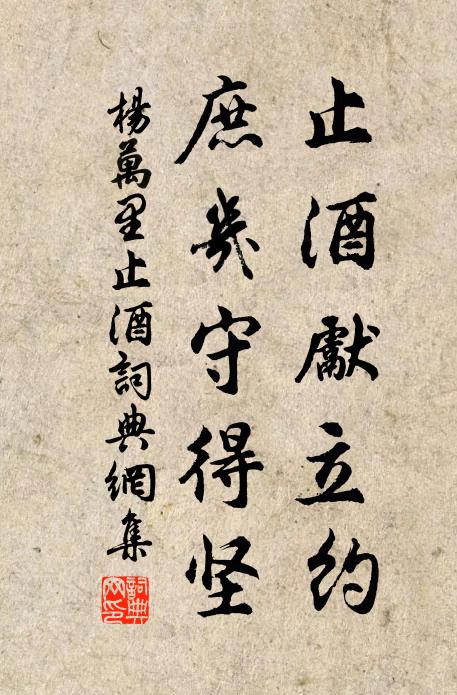 止酒獻立約
庶幾守得坚
楊萬里止酒詞典網集
詞典网印